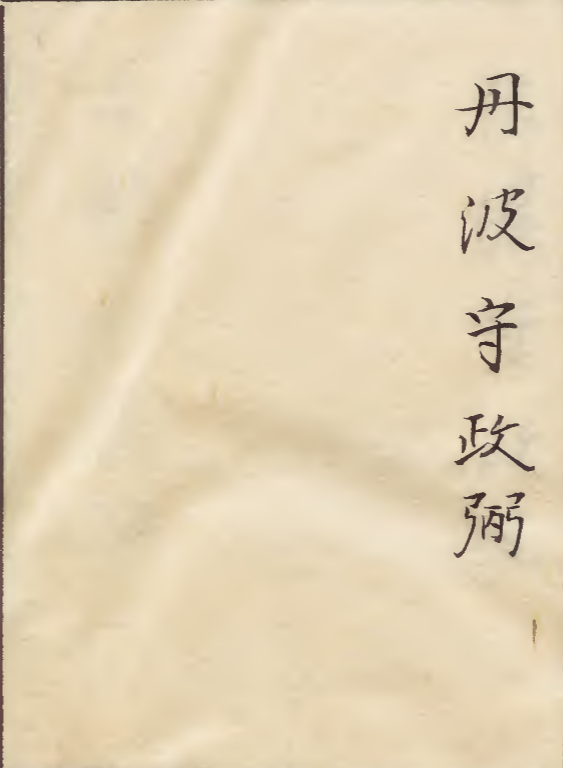 丹波守政弼